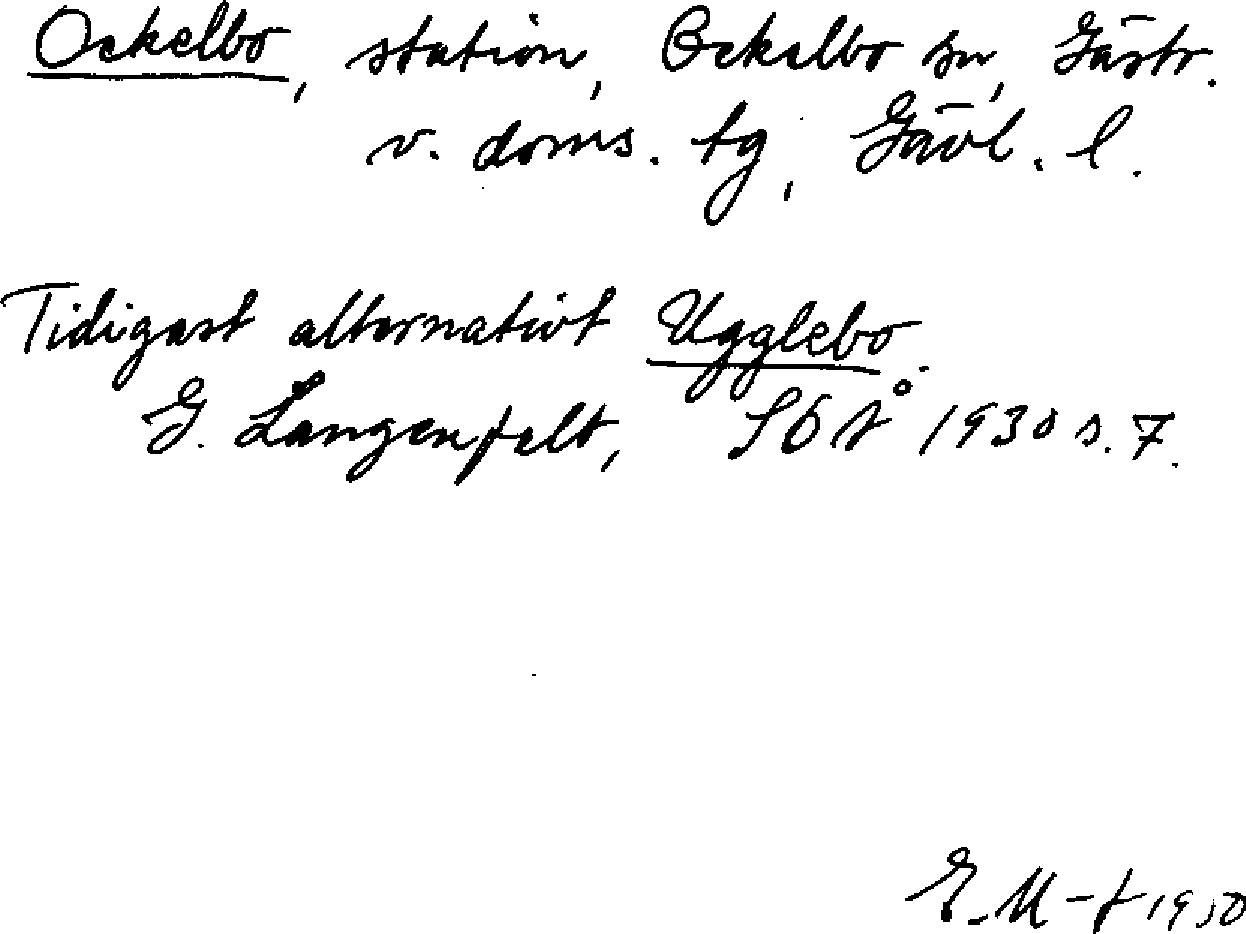 Ockelbo, station, Ockelbo sn, Gästr.
v. doms. tg, Gävl. l.
Tidigast alternativt Ugglebo.
G. Langenfelt, SOÅ 1930 s. 7.
E. M-t 1950